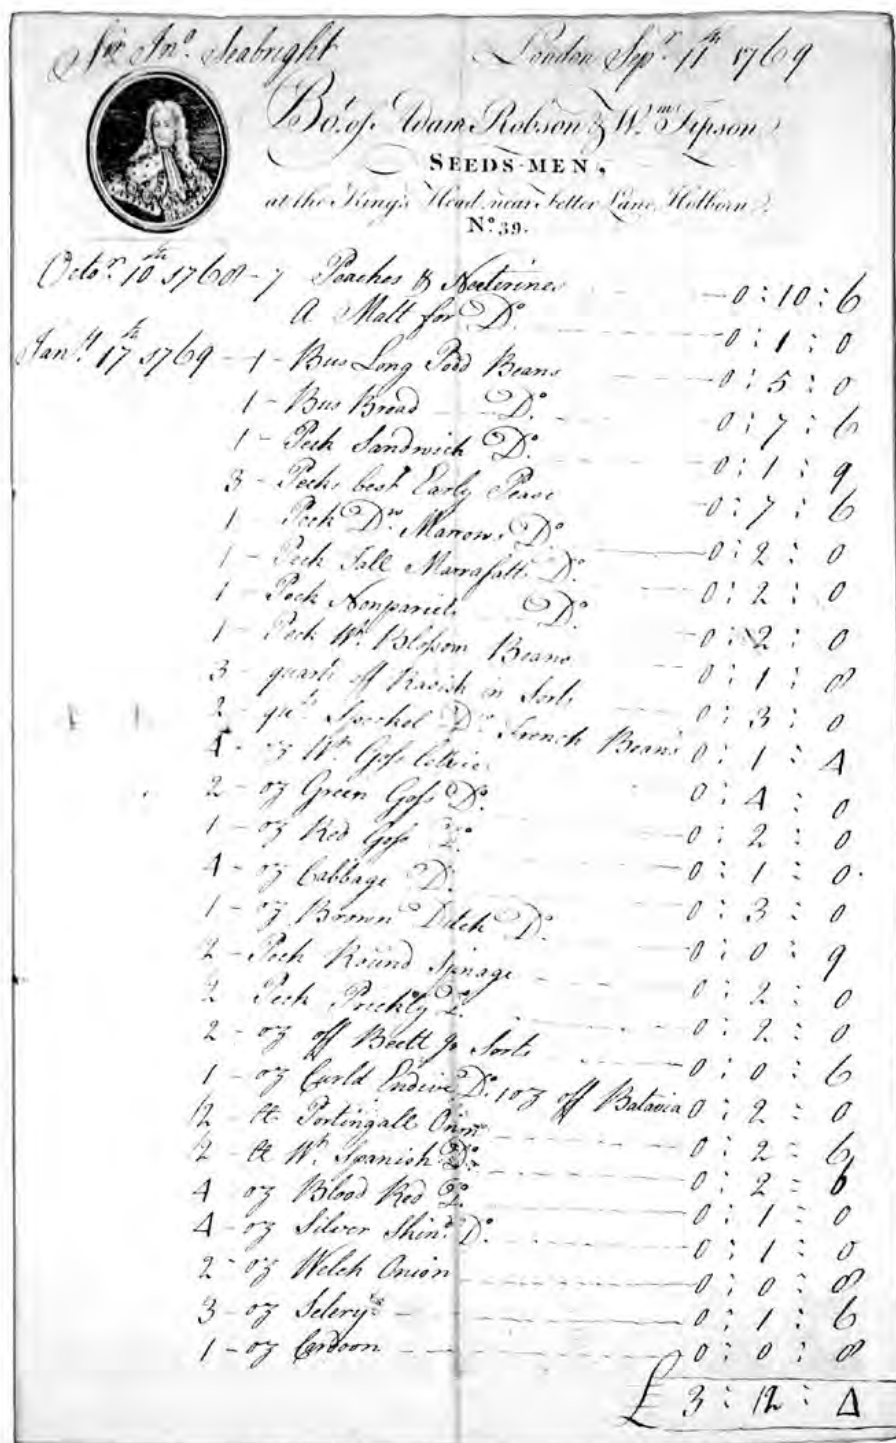 Sir Jno. Seabright London Sepr. 11th 1769
Bot. of Adam Robson & Wm. Tipson
SEEDS-MEN,
at the King's Head, near Fetter Lane, Holborn
No. 39.
Octor. 10th 1768 - 7 Peaches & Necterines 0 : 10 : 6
A Matt for Do. 0 : 1 : 0
Jany. 17th 1769 - 1 - Bus Long Podd Beans 0 : 5 : 0
1 - Bus Broad Do. 0 : 7 : 6
1 - Peck Sandwich Do. 0 : 1 : 9
3 - Pecks best Early Pease 0 : 7 : 6
1 - Peck Marrow Do. 0 : 2 : 0
1 - Peck Tall Marrafatt Do. 0 : 2 : 0
1 - Peck Nonpariel Do. 0 : 2 : 0
1 - Peck Wt. Blossom Beans 0 : 1 : 8
3 - quarts off Radish in Sorts 0 : 3 : 0
2 - qts. Speckel Do. French Beans 0 : 1 : 4
4 - oz Wt. Goss 0 : 4 : 0
2 - oz Green Goss Do. 0 : 2 : 0
1 - oz Red Goss Do. 0 : 1 : 0
4 - oz Cabbage Do. 0 : 3 : 0
1 - oz Brown Dutch Do. 0 : 0 : 9
2 - Peck Round Spinage 0 : 2 : 0
2 Peck Prickly Do. 0 : 2 : 0
2 - oz off Beett Sorts 0 : 0 : 6
1 - oz Curld Endive Do. 1 oz off Batavia 0 : 2 : 0
12 - Portingall Onion 0 : 2 : 6
2 - Wt. Spanish Do. 0 : 2 : 6
4 oz Blood Red Do. 0 : 1 : 0
4 - oz Silver Skin'd Do. 0 : 1 : 0
2 - oz Welch Onion 0 : 0 : 8
3 - oz Selery 0 : 1 : 6
1 - oz Cardoon 0 : 0 : 8
£ 3 : 12 : 4